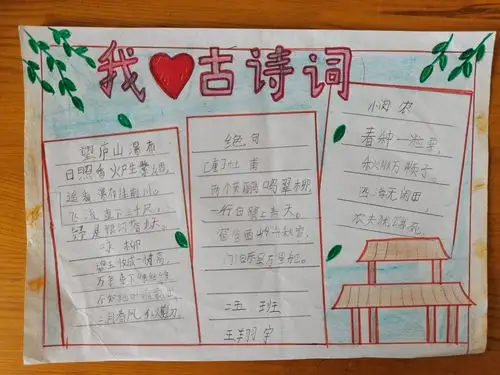 我 古诗词
望庐山瀑布
日照香炉生紫烟,
遥看瀑布挂前川。
飞流直下三千尺,
疑是银河落九天。
咏柳
碧玉妆成一树高,
万条垂下绿丝绦
不知细叶谁裁出
二月春风似剪刀
绝句
[唐]杜甫
两个黄鹂鸣翠柳,
一行白鹭上青天。
窗含西岭千秋雪,
门泊东吴万里船。
二五 班
王翔宇
悯农
春种一粒粟,
秋收万颗子。
四海无闲田,
农夫犹饿死。